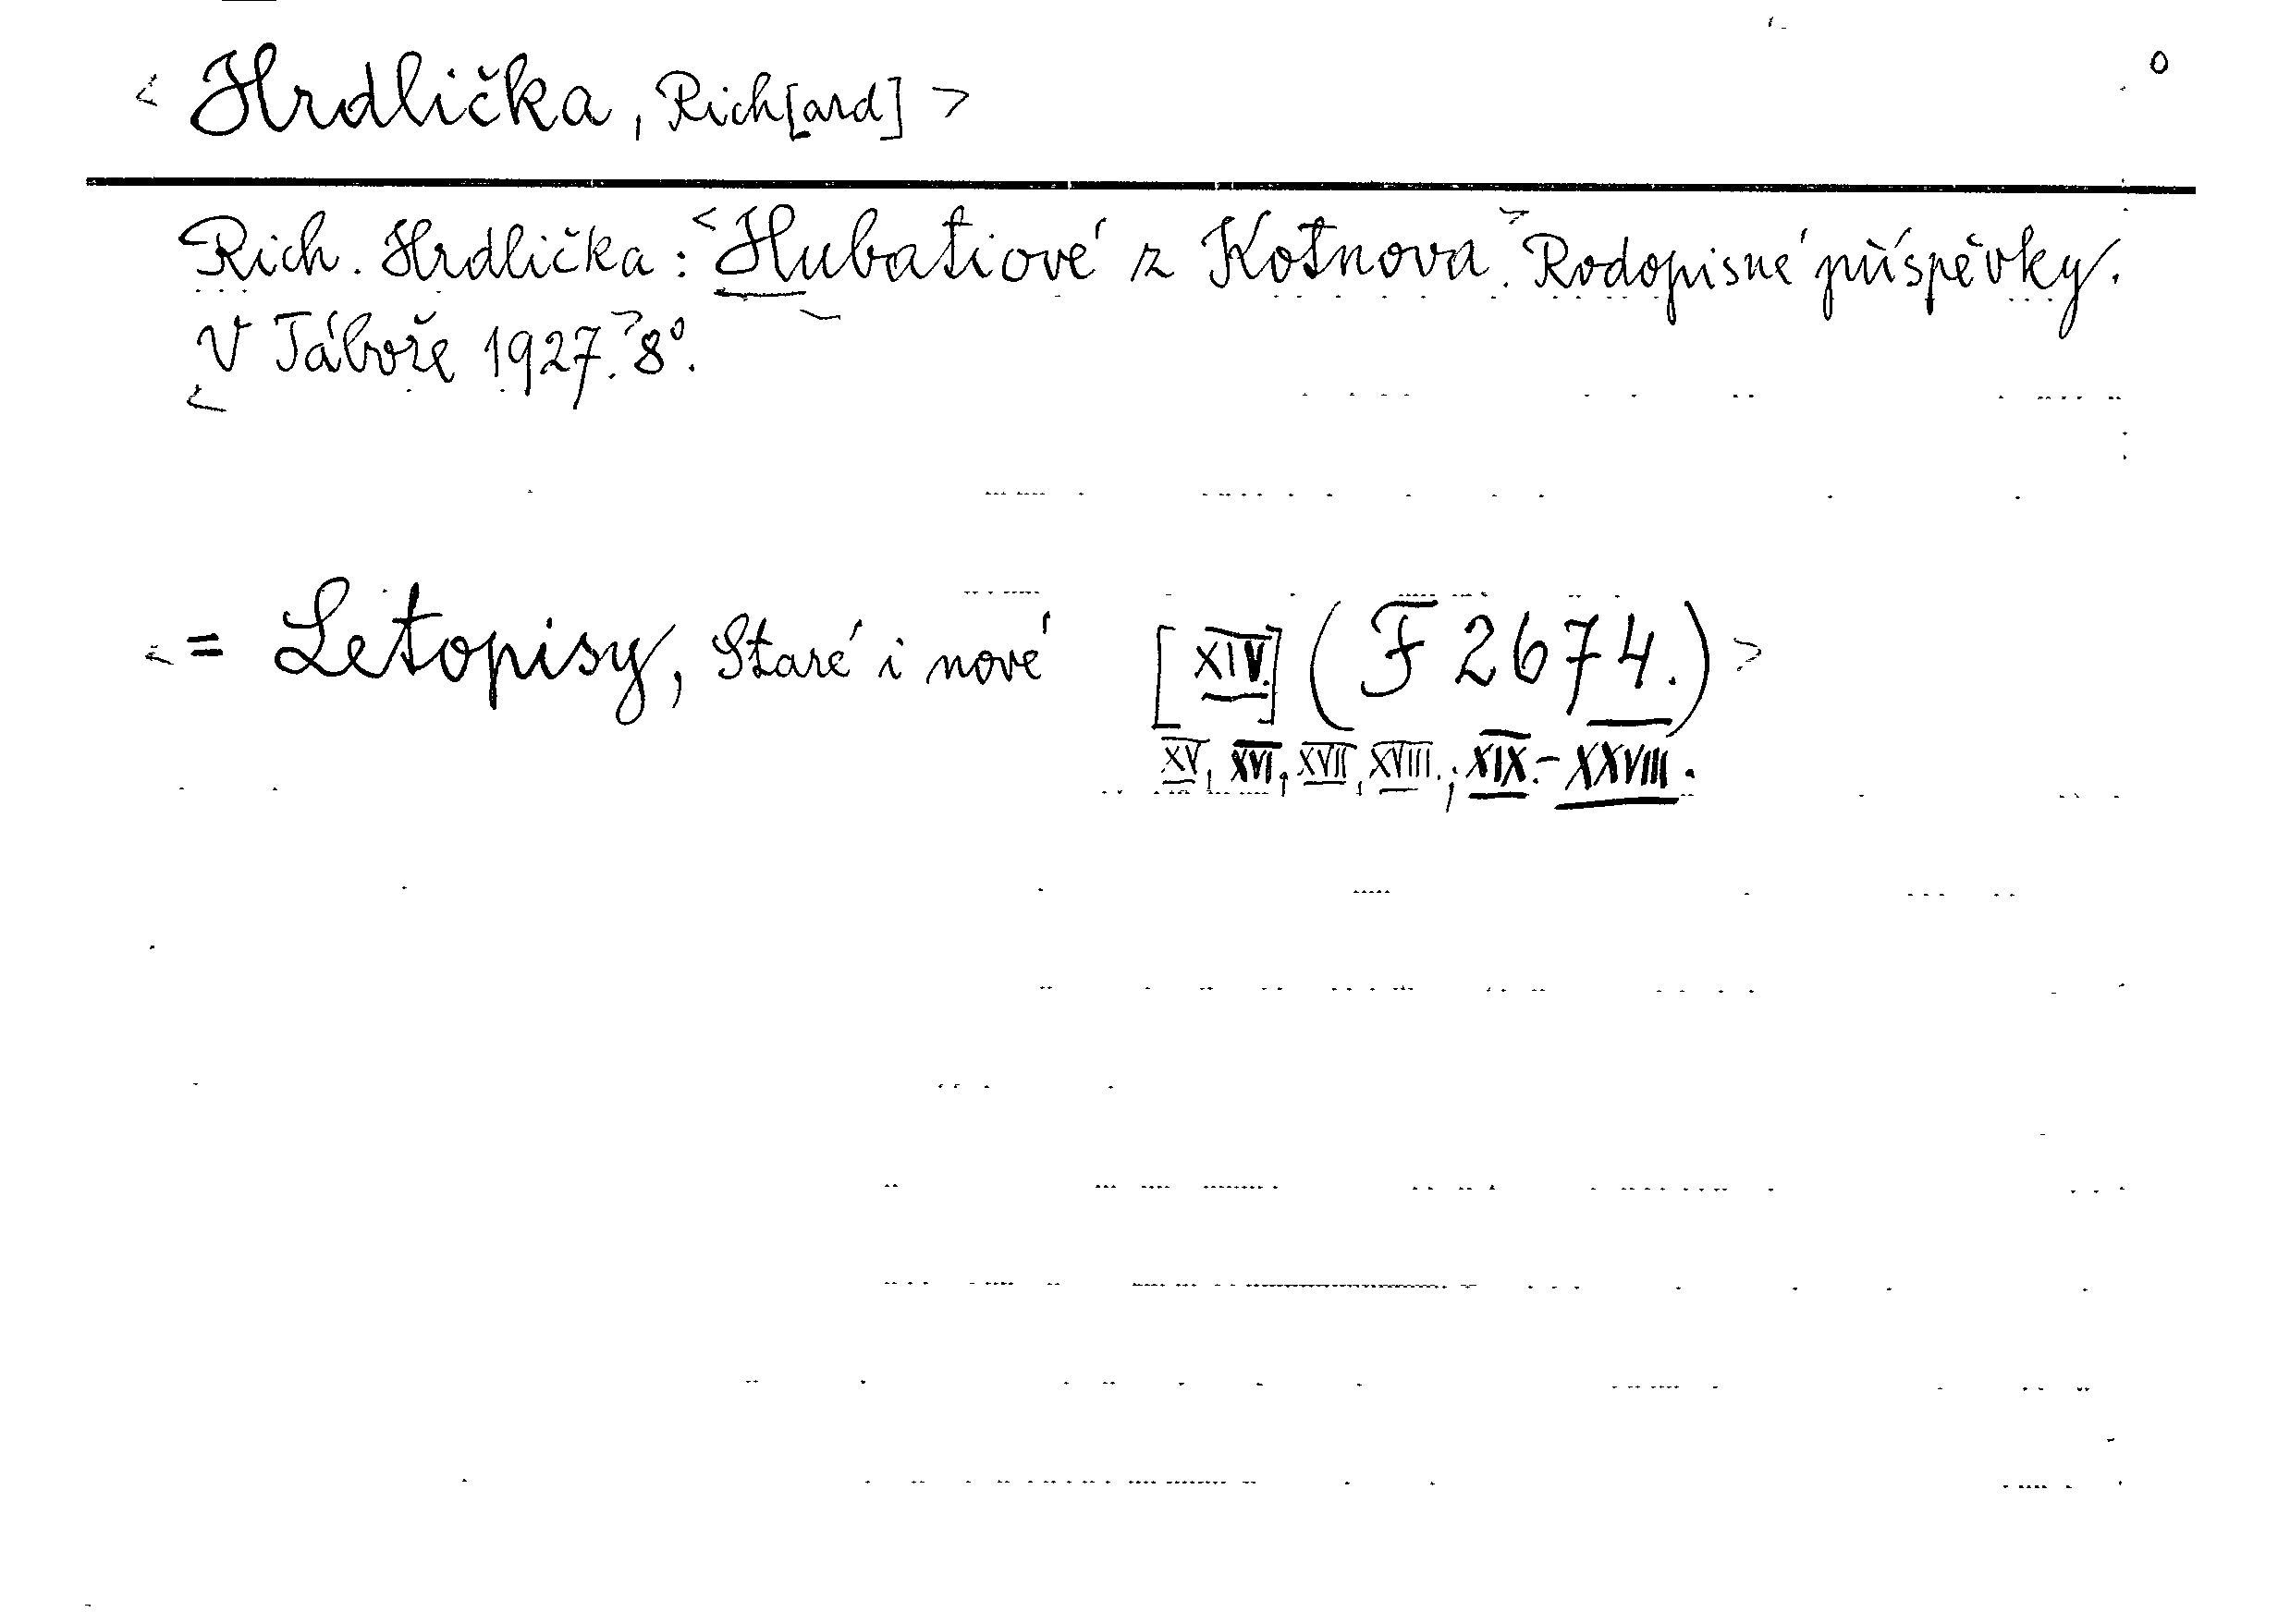 < Hrdlička, Rich[ard] >
Rich. Hrdlička: <Hubatiové z Kotnova.> Rodopisné příspěvky.
V Táboře 1927.> 8°.
< = Letopisy, Staré i nové [XIV.] (F 2674.) >
XV, XVI, XVII, XVIII.; XIX.-XXVIII.